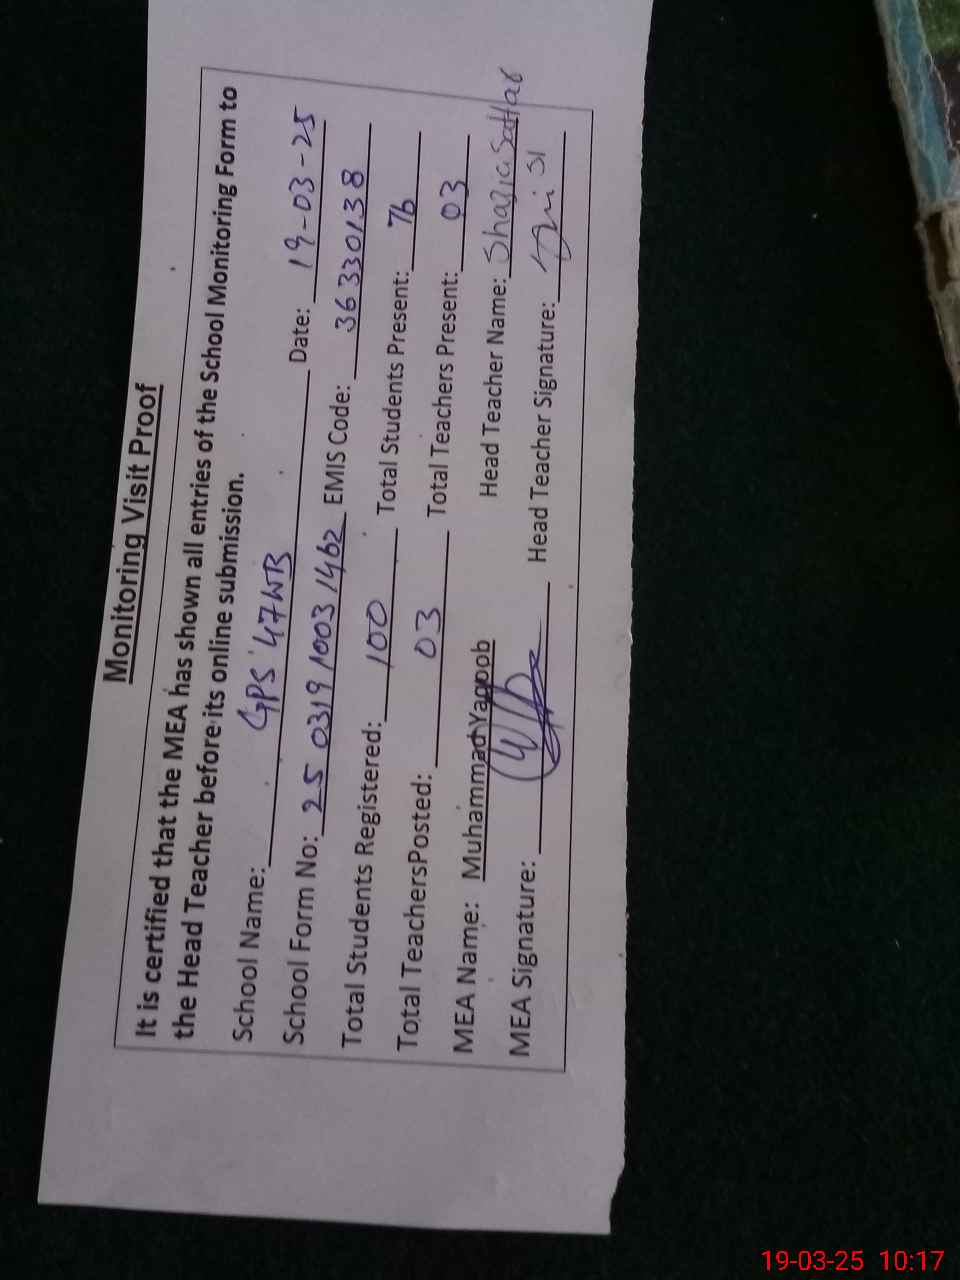 Monitoring Visit Proof
It is certified that the MEA has shown all entries of the School Monitoring Form to
the Head Teacher before its online submission.
School Name: GPS 47WB Date: 19-03-25
School Form No: 25 0319 1003 1462 EMIS Code: 36330138
Total Students Registered: 100 Total Students Present: 76
Total TeachersPosted: 03 Total Teachers Present: 03
MEA Name: Muhammad Yaqoob Head Teacher Name: Shazia Sattar
MEA Signature: Head Teacher Signature:
19-03-25 10:17